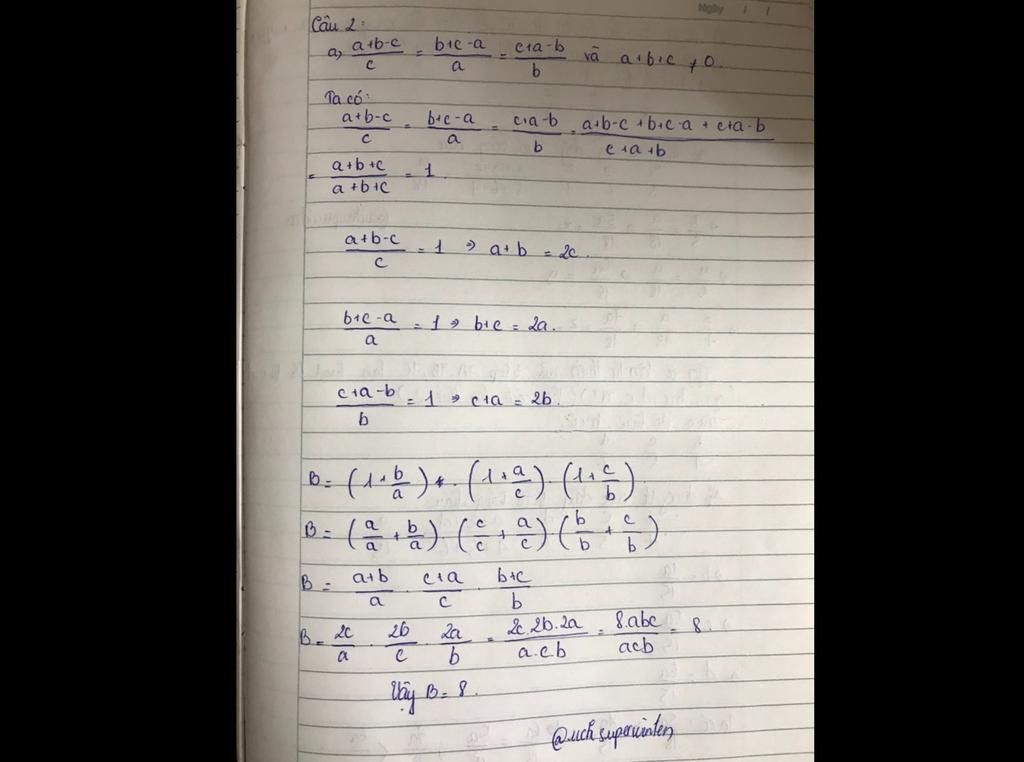 Ngày / /
Câu 2:
a, (a+b-c)/c = (b+c-a)/a = (c+a-b)/b và a+b+c ≠ 0.
Ta có:
(a+b-c)/c = (b+c-a)/a = (c+a-b)/b = (a+b-c+b+c-a+c+a-b)/(c+a+b)
= (a+b+c)/(a+b+c) = 1.
(a+b-c)/c = 1 => a+b = 2c.
(b+c-a)/a = 1 => b+c = 2a.
(c+a-b)/b = 1 => c+a = 2b.
B = (1+b/a) . (1+a/c) . (1+c/b)
B = (a/a + b/a) . (c/c + a/c) . (b/b + c/b)
B = (a+b)/a . (c+a)/c . (b+c)/b
B = 2c/a . 2b/c . 2a/b = (2c.2b.2a)/(a.c.b) = 8.abc/acb = 8.
Vậy B = 8.